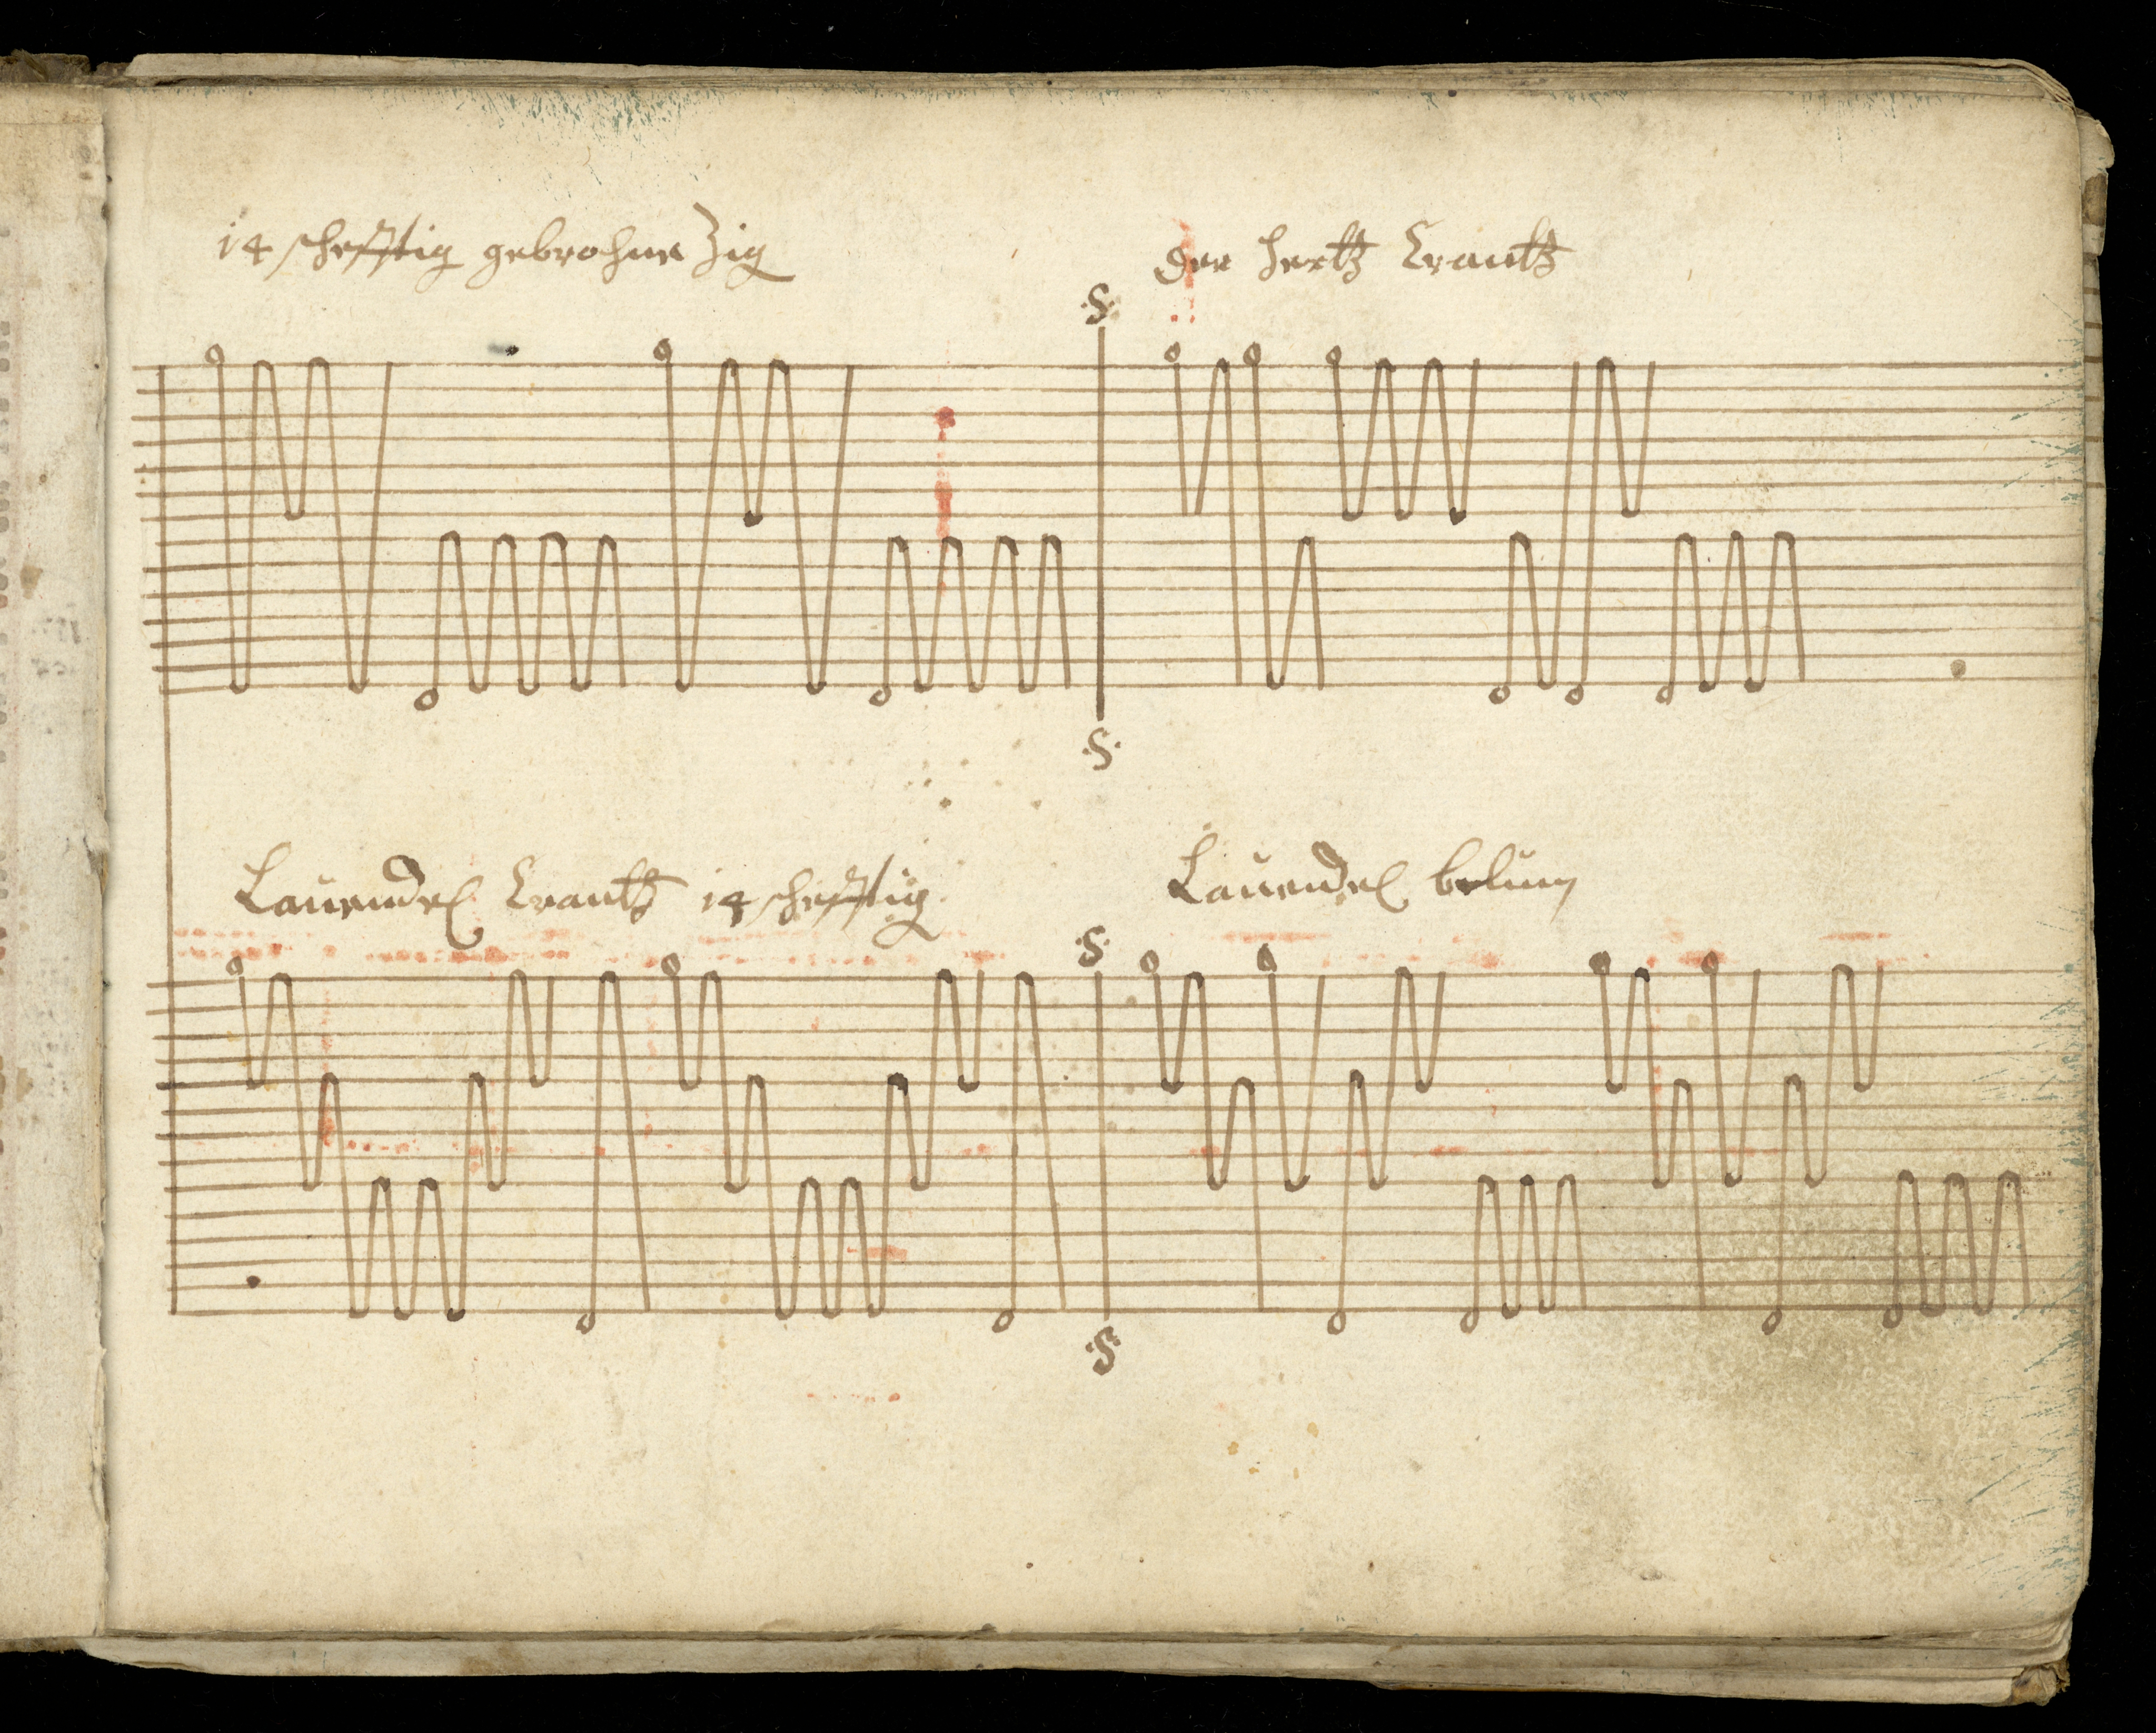 14 schefftig gebrohne Zig
der hertz Crantz
.S.
.S.
Lauendel Crantz 14 schefftig
Lauendel belum
.S.
.S.